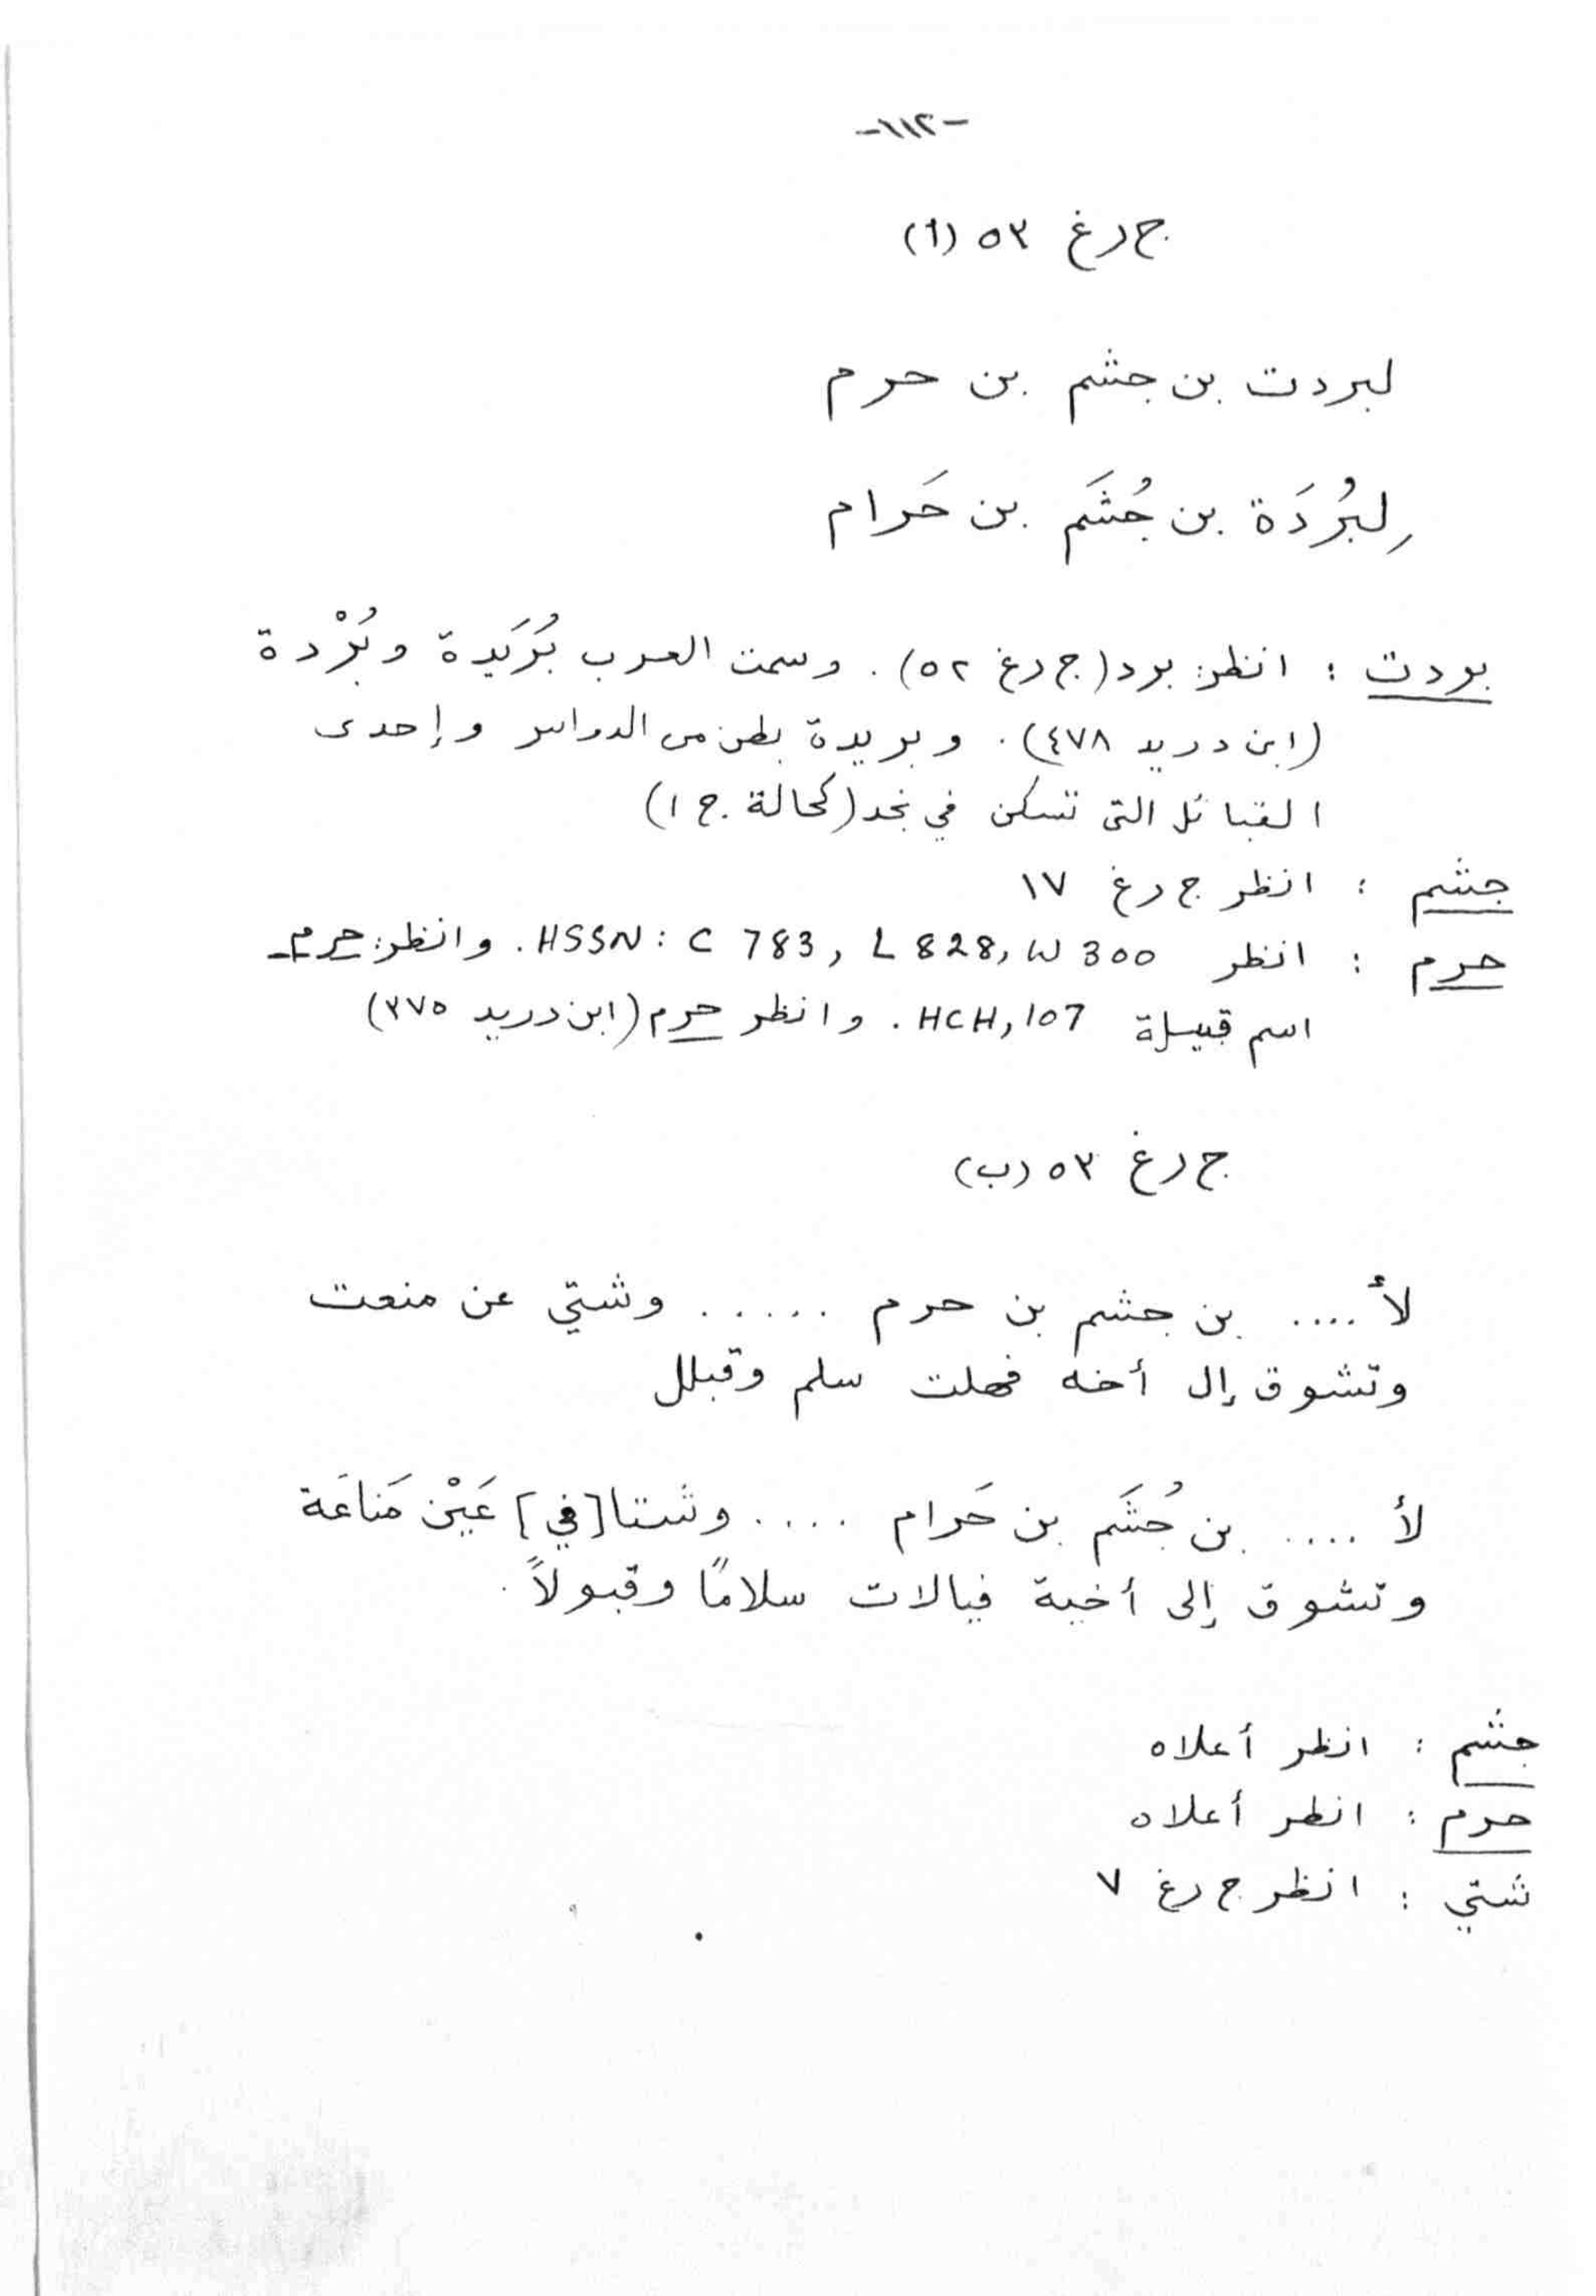 -١١٢-
ج ر غ ٥٣ (أ)
لبردت بن جشم بن حرم
لِبُرُدَة بن جُشَم بن حَرام
بردت : انظر: برد (ج ر غ ٥٢). وسمت العرب بُرَيدة وبُرْدة
(ابن دريد ٤٧٨). وبريدة بطن من الدواسر وإحدى
القبائل التي تسكن في نجد (كحالة ج ١)
جشم : انظر ج ر غ ١٧
حرم : انظر HSSN : C 783, L 828, W 300. وانظر: حرم
اسم قبيلة HCH, 107. وانظر حرم (ابن دريد ٣٧٥)
ج ر غ ٥٣ (ب)
لأ .... بن جشم بن حرم ..... وشتي عن منعت
وتشوق إل أخه فهلت سلم وقبلل
لأ .... بن جُشَم بن حَرام .... وشتا [في] عَيْن مَناعَة
وتشوق إلى أخية فيالات سلامًا وقبولاً.
جشم : انظر أعلاه
حرم : انظر أعلاه
شتي : انظر ج ر غ ٧